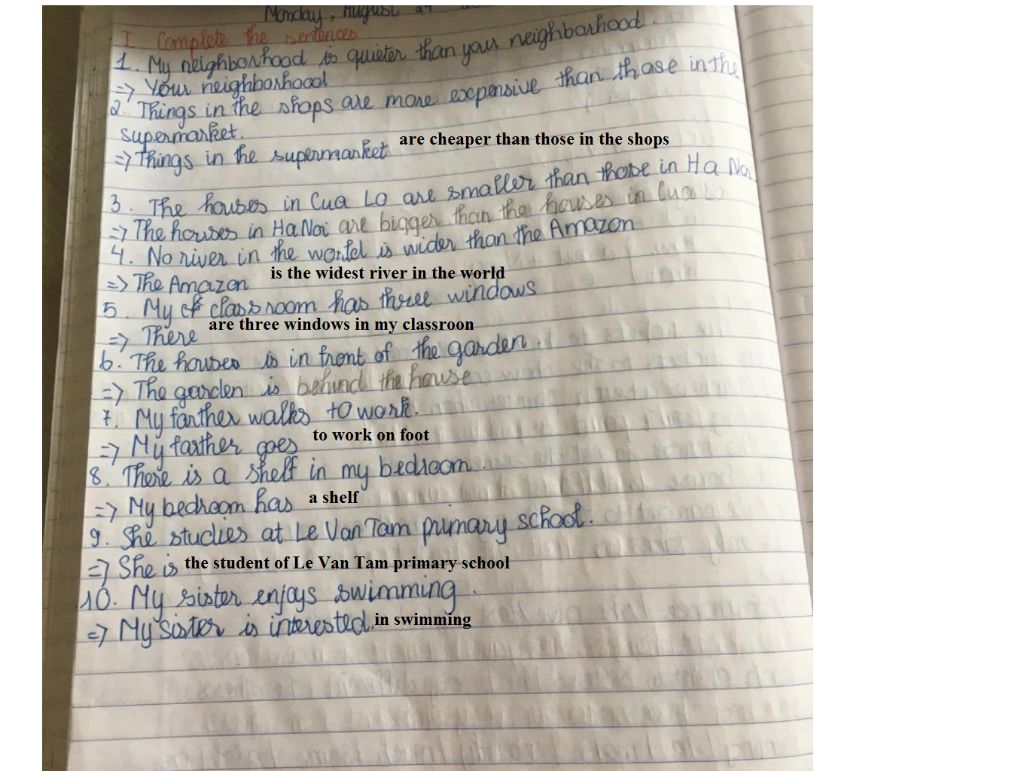 Monday, August
I Complete the sentences
1. My neighborhood is quieter than your neighborhood.
=> Your neighborhood
2. Things in the shops are more expensive than those in the
supermarket.
=> Things in the supermarket are cheaper than those in the shops
3. The houses in Cua Lo are smaller than those in Ha Noi
=> The houses in Ha Noi are bigger than the houses in Cua Lo
4. No river in the world is wider than the Amazon
=> The Amazon is the widest river in the world
5. My classroom has three windows
=> There are three windows in my classroon
6. The houses is in front of the garden.
=> The garden is behind the house
7. My farther walks to work.
=> My farther goes to work on foot
8. There is a shelf in my bedroom.
=> My bedroom has a shelf
9. She studies at Le Van Tam primary school.
=> She is the student of Le Van Tam primary school
10. My sister enjoys swimming.
=> My sister is interested in swimming